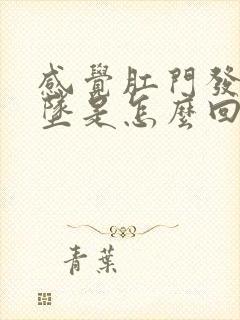 感覺肛門發
墜是怎麼回
青葉